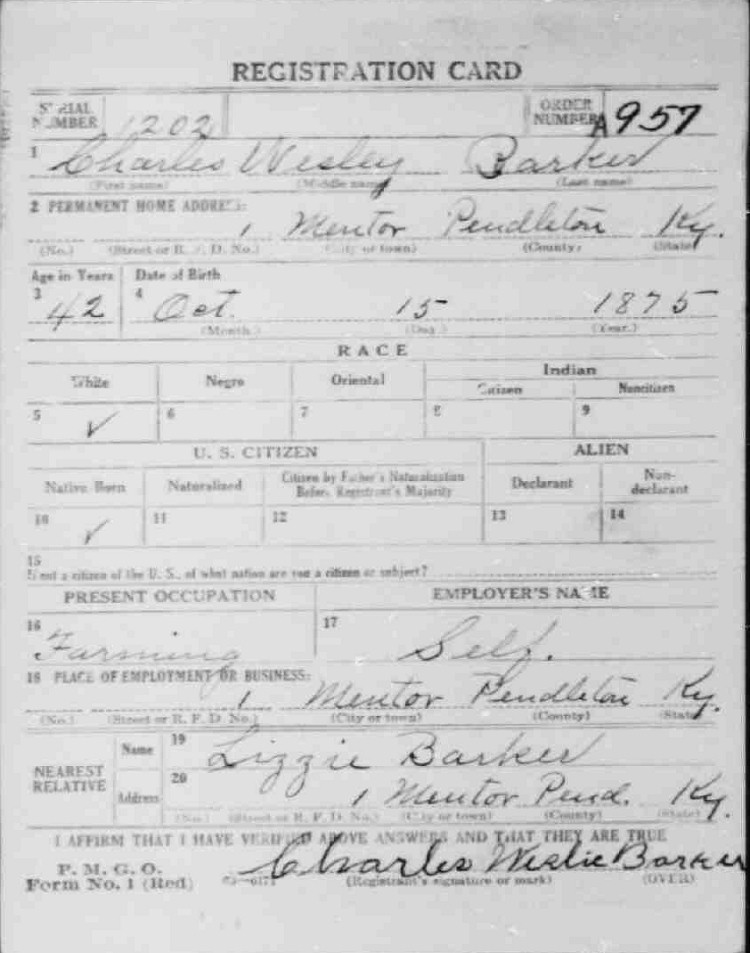 REGISTRATION CARD
SERIAL NUMBER 1202 ORDER NUMBER A957
1 Charles Wesley Barker
(First name) (Middle name) (Last name)
2 PERMANENT HOME ADDRESS:
1 Mentor Pendleton Ky.
(No.) (Street or R. F. D. No.) (City or town) (County) (State)
Age in Years Date of Birth
3 42 4 Oct. 15 1875
(Month.) (Day.) (Year.)
RACE
White Negro Oriental Indian
Citizen Noncitizen
5 ✓ 6 7 8 9
U. S. CITIZEN ALIEN
Native Born Naturalized Citizen by Father's Naturalization Before Registrant's Majority Declarant Non-declarant
10 ✓ 11 12 13 14
15
If not a citizen of the U. S., of what nation are you a citizen or subject?
PRESENT OCCUPATION EMPLOYER'S NAME
16 Farming 17 Self.
18 PLACE OF EMPLOYMENT OR BUSINESS:
1 Mentor Pendleton Ky.
(No.) (Street or R. F. D. No.) (City or town) (County) (State)
NEAREST RELATIVE Name 19 Lizzie Barker
Address 20 1 Mentor Pend. Ky.
(No.) (Street or R. F. D. No.) (City or town) (County) (State)
I AFFIRM THAT I HAVE VERIFIED ABOVE ANSWERS AND THAT THEY ARE TRUE
P. M. G. O.
Form No. 1 (Red) Charles Weslie Barker
(Registrant's signature or mark) (OVER)